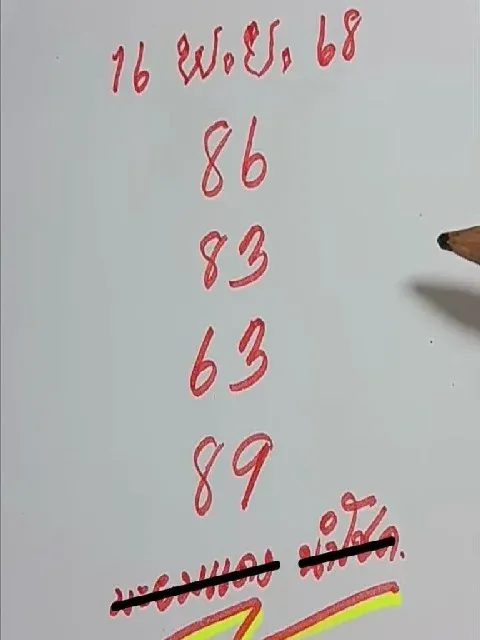 16 พ.ย. 68
86
83
63
89